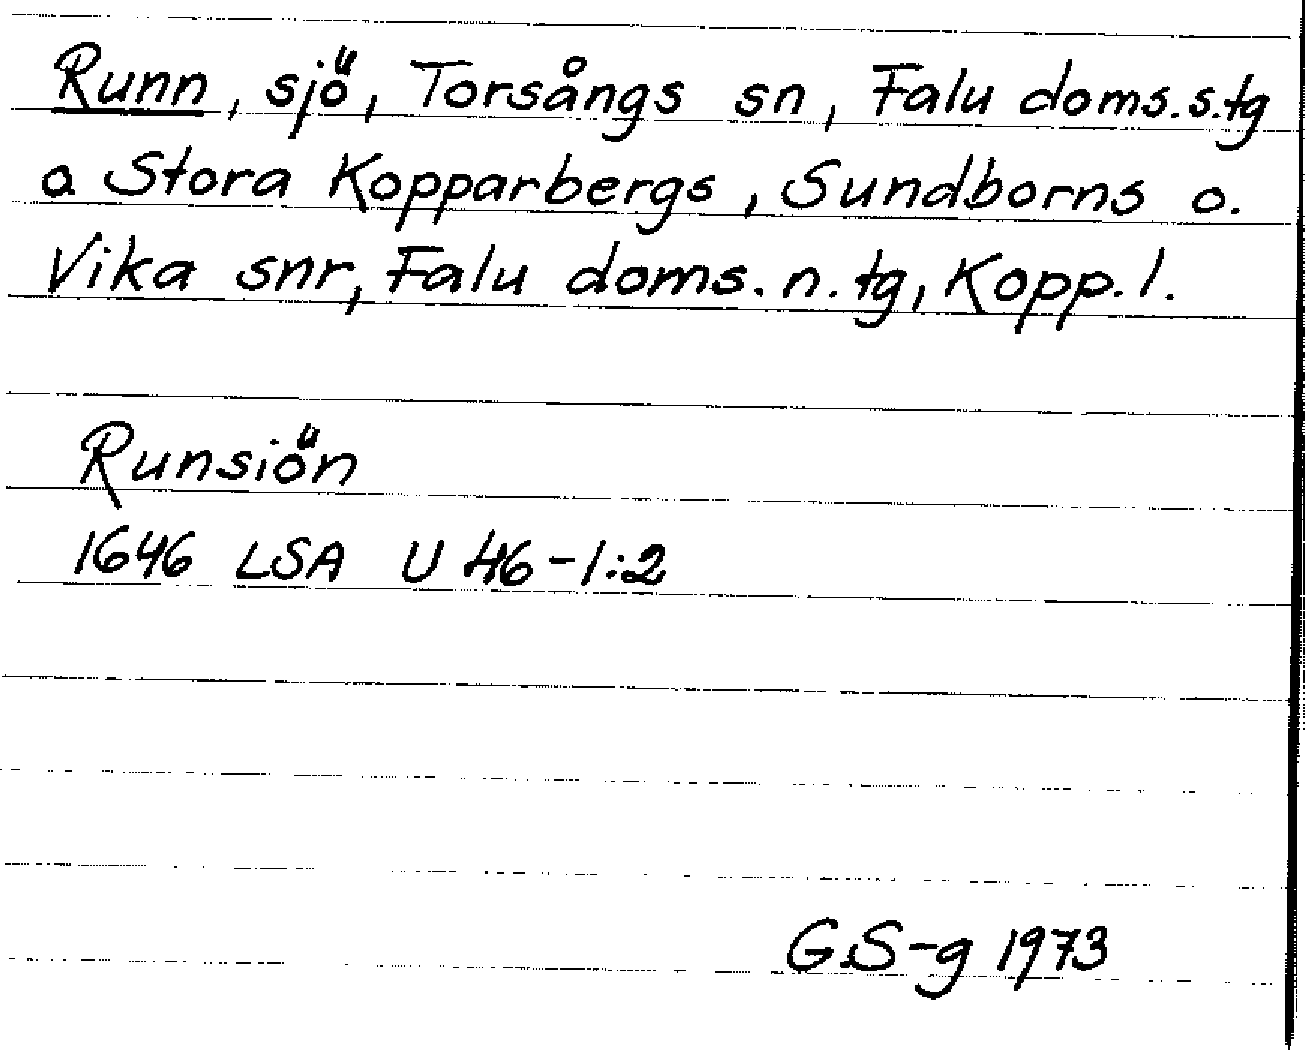 Runn, sjö, Torsångs sn, Falu doms.s.tg
o Stora Kopparbergs, Sundborns o.
Vika snr, Falu doms.n.tg, Kopp.l.
Runsiön
1646 LSA U 46-1:2
G.S-g 1973